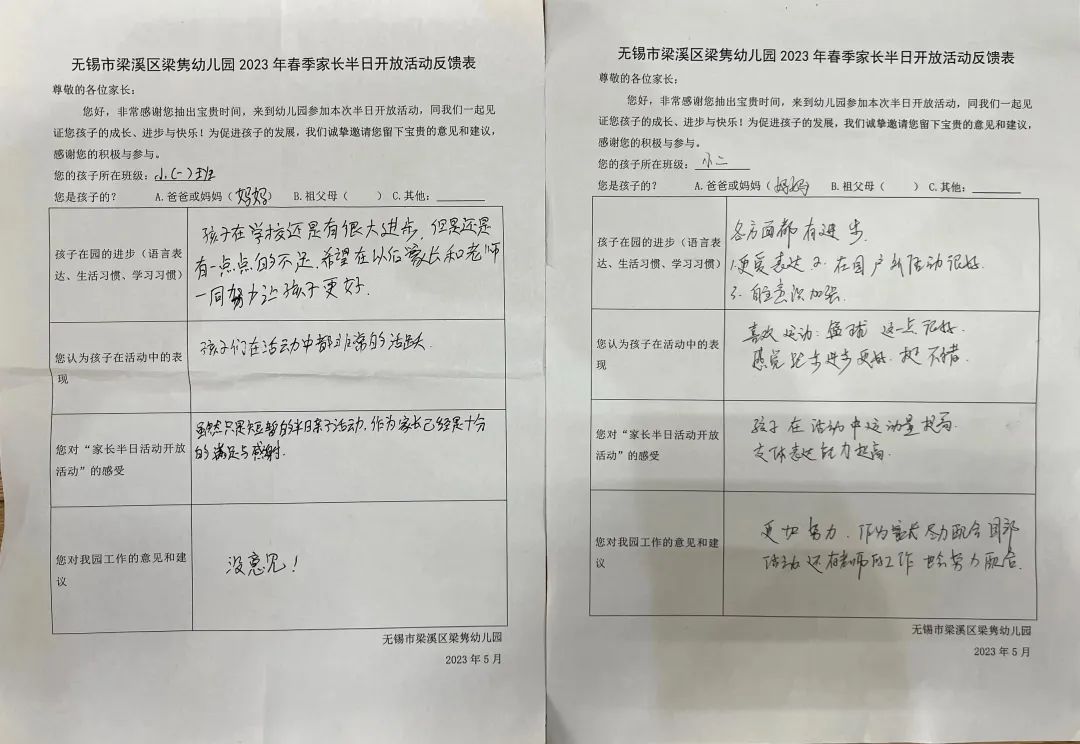 无锡市梁溪区梁隽幼儿园 2023 年春季家长半日开放活动反馈表
尊敬的各位家长：
您好，非常感谢您抽出宝贵时间，来到幼儿园参加本次半日开放活动，同我们一起见
证您孩子的成长、进步与快乐！为促进孩子的发展，我们诚挚邀请您留下宝贵的意见和建议，
感谢您的积极与参与。
您的孩子所在班级：小（一）班
您是孩子的？ A.爸爸或妈妈（妈妈） B.祖父母（ ） C.其他：
孩子在园的进步（语言表
达、生活习惯、学习习惯）
孩子在学校还是有很大进步，但是还是
有一点点的不足，希望在以后家长和老师
一同努力让孩子更好.
您认为孩子在活动中的表
现
孩子们在活动中都非常的活跃
您对“家长半日活动开放
活动”的感受
虽然只是短暂的半日亲子活动，作为家长已经是十分
的满足与感谢.
您对我园工作的意见和建
议
没意见！
无锡市梁溪区梁隽幼儿园
2023 年 5 月
无锡市梁溪区梁隽幼儿园 2023 年春季家长半日开放活动反馈表
尊敬的各位家长：
您好，非常感谢您抽出宝贵时间，来到幼儿园参加本次半日开放活动，同我们一起见
证您孩子的成长、进步与快乐！为促进孩子的发展，我们诚挚邀请您留下宝贵的意见和建议，
感谢您的积极与参与。
您的孩子所在班级：小二
您是孩子的？ A.爸爸或妈妈（妈妈） B.祖父母（ ） C.其他：
孩子在园的进步（语言表
达、生活习惯、学习习惯）
各方面都有进步.
1.更爱表达 2. 在园户外活动很好.
3. 自主意识加强.
您认为孩子在活动中的表
现
喜欢运动：篮球 这一点很好.
感觉 进步更好. 挺不错.
您对“家长半日活动开放
活动”的感受
孩子在活动中运动量提高.
支体表达能力提高.
您对我园工作的意见和建
议
更加努力. 作为家长尽力配合园部
活动还有老师的工作 努力配合.
无锡市梁溪区梁隽幼儿园
2023 年 5 月